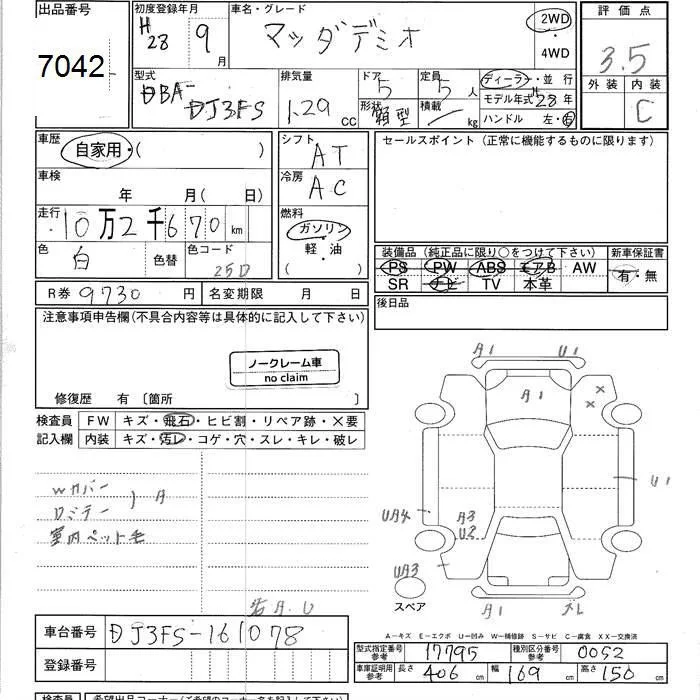 出品番号
7042
初度登録年月
H28 9月
車名・グレード
マツダデミオ
2WD
・
4WD
評価点
3.5
外装 内装
C
型式
DBA-
DJ3FS
排気量
1.29 cc
ドア 5
定員 5人
形状 箱型
積載 kg
ディーラー・並行
モデル年式 H28年
ハンドル 左・右
車歴
自家用・( )
シフト
AT
セールスポイント (正常に機能するものに限ります)
車検
年 月( 日)
冷房
AC
走行
10万2千670km
燃料
ガソリン
軽・油
( )
色
白
色替
色コード
25D
装備品 (純正品に限り○をつけて下さい)
新車保証書
PS PW ABS エアB AW
SR ナビ TV 本革
有・無
R券 9730円
名変期限 月 日
後日品
注意事項申告欄(不具合内容等は具体的に記入して下さい)
ノークレーム車
no claim
修復歴 有 〔箇所 〕
検査員 FW キズ・飛石・ヒビ割・リペア跡・×要
記入欄 内装 キズ・汚レ・コゲ・穴・スレ・キレ・破レ
Wカバー
ロミテー ) A
室内ペット毛
A1 U1
A1
× ×
U1
UA4
A3
U2
UA3
スペア
A1
A.U
A−キズ E−エクボ U−凹み W−補修跡 S−サビ C−腐食 XX−交換済
車台番号 DJ3FS-161078
登録番号
型式指定番号 参考 17795
種別区分番号 参考 0052
車庫証明用 参考 長さ 406cm 幅 169cm 高さ 150cm
検査員 希望出品コーナー(ご希望のコーナー名を記入下さい)